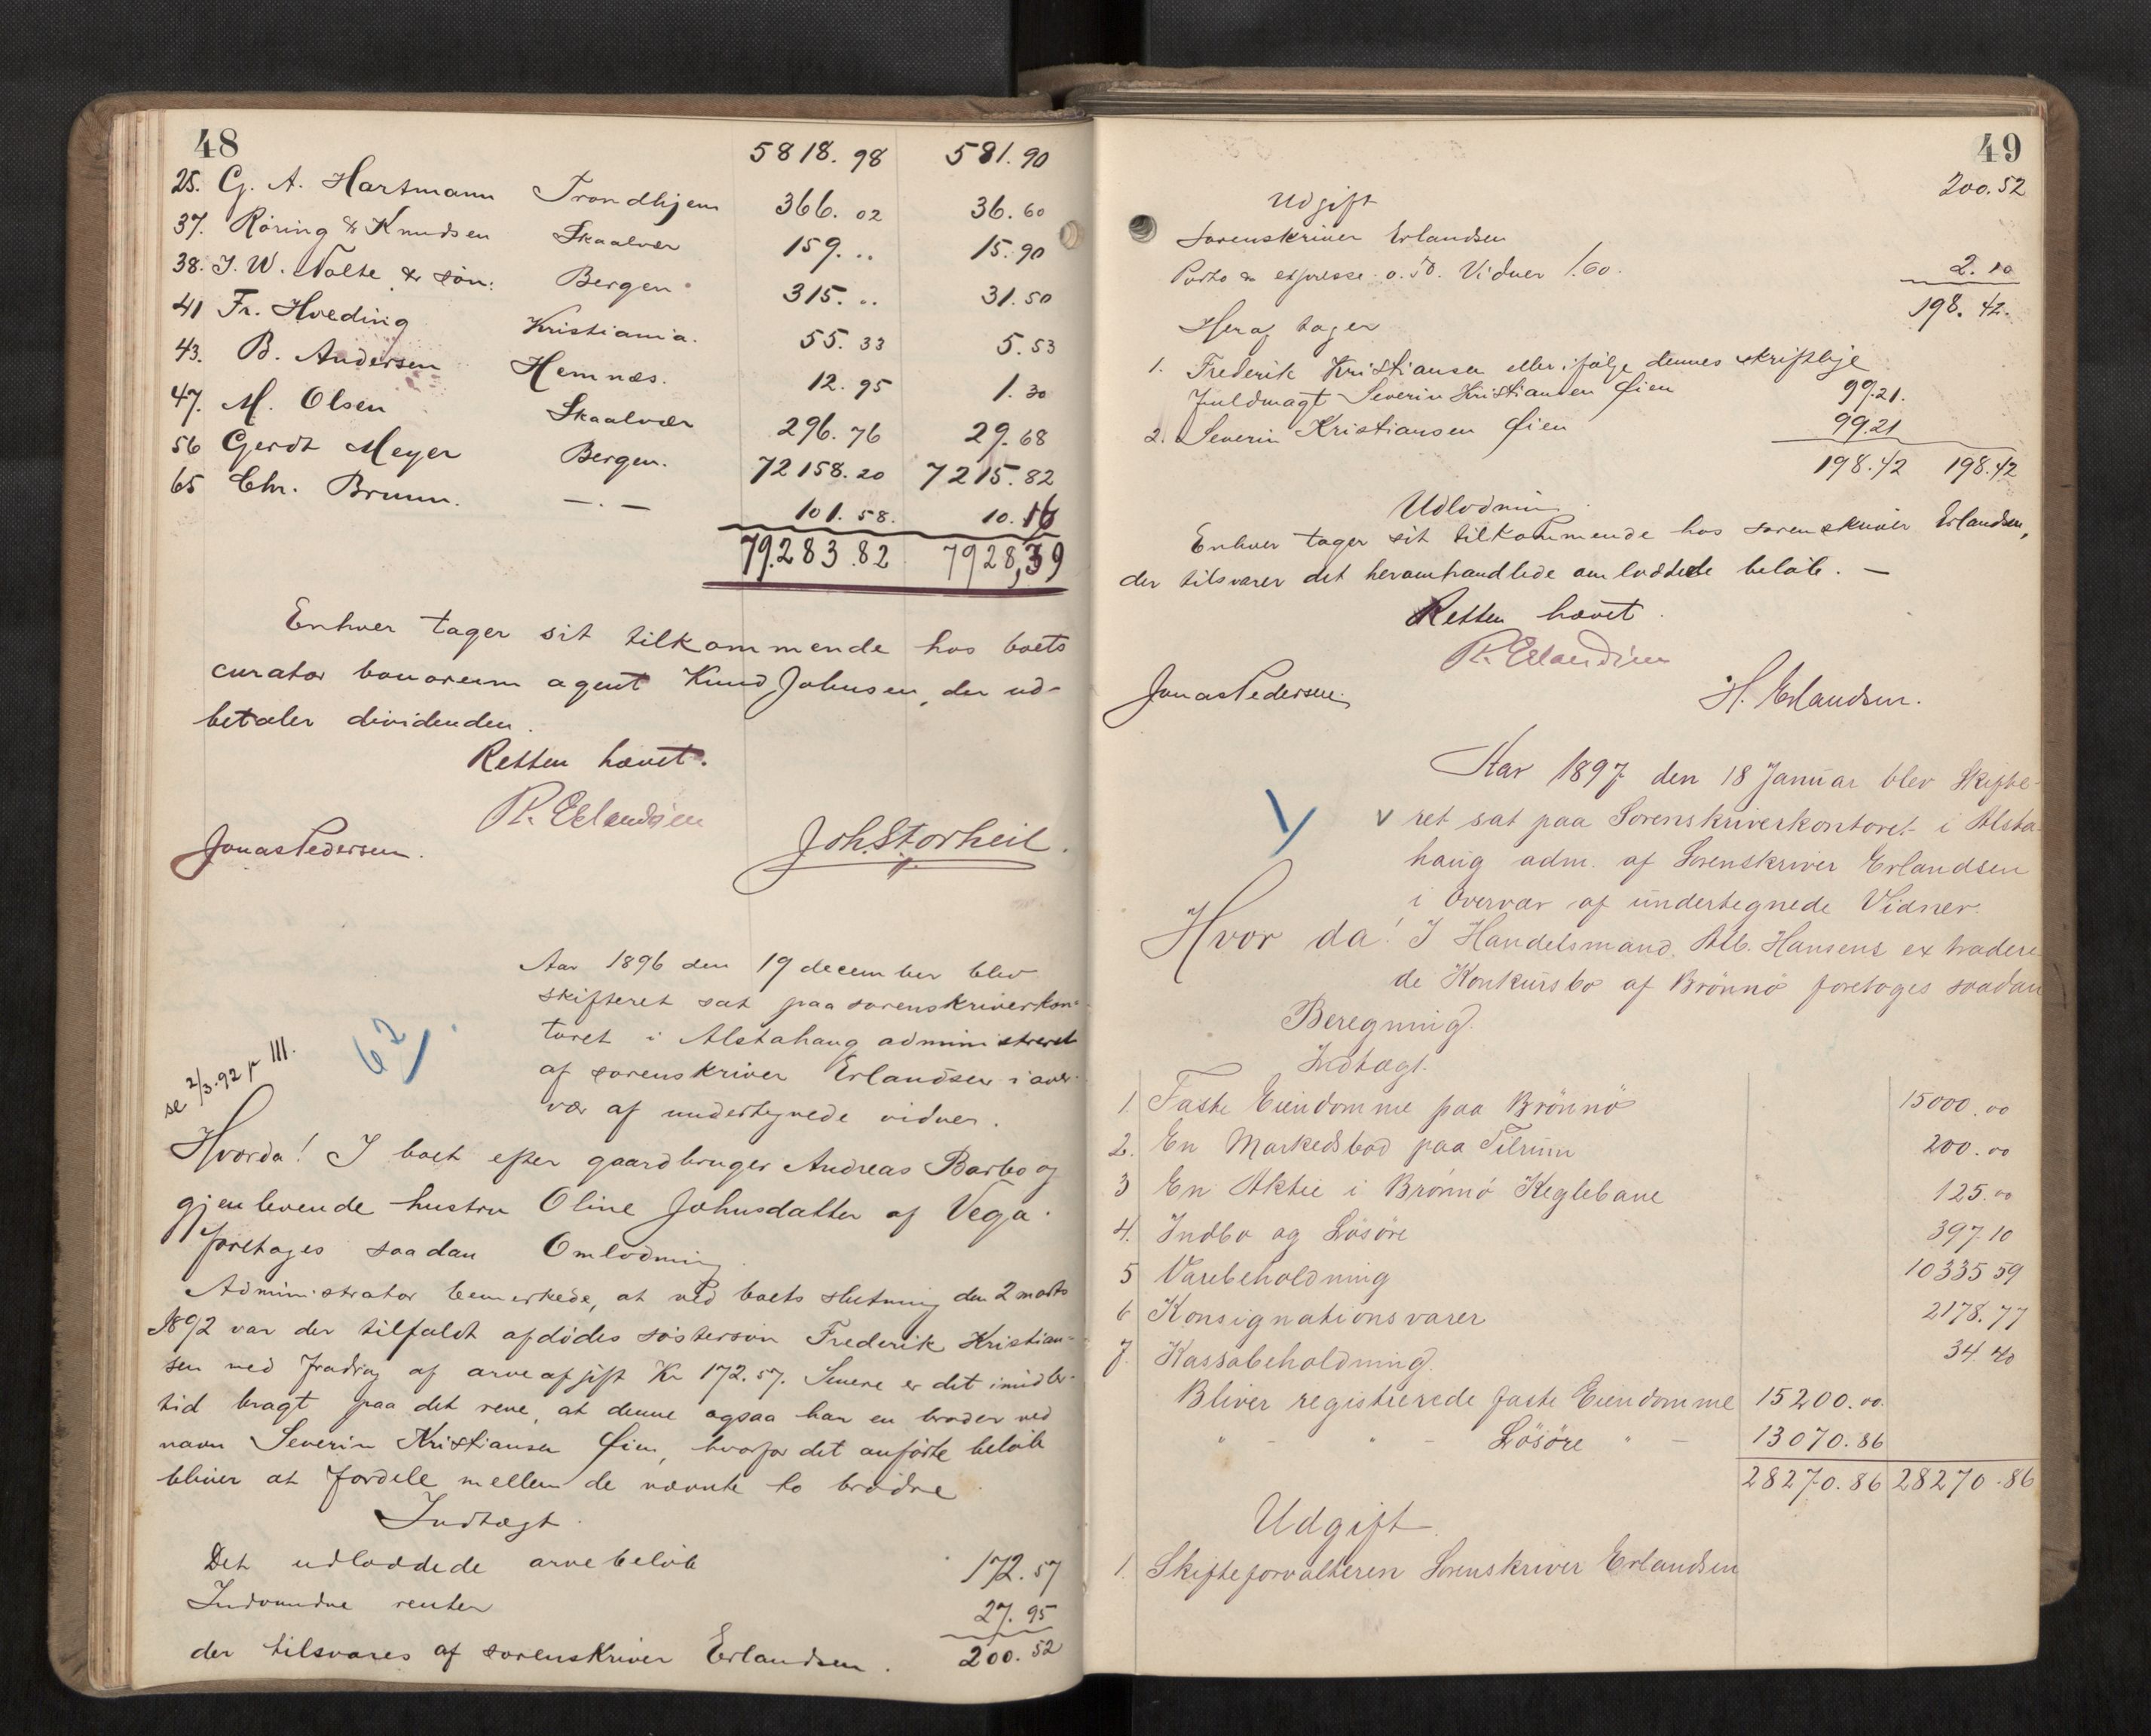 48
5818.98 581.90
25. G. A. Hartmann Trondhjem 366.02 36.60
37. Röring & Knudsen Skaalvær 159... 15.90
38. J. W. Nolte & søn: Bergen 315... 31.50
41 Fr. Hveding Kristiania. 55.33 5.53
43. B. Andersen Hemnæs. 12.95 1.30
47. M. Olsen Skaalvær 296.76 29.68
56 Gerdt Meyer Bergen. 72158.20 7215.82
65 Chr. Bruun. —.— 101.58. 10.16
79.283.82 7928,39
Enhver tager sit tilkommende hos boets
curator bonorum agent Knud Johnsen, der ud-
betaler dividenden.
Retten hævet.
R. Erlandsen
Jonas Pedersen. Joh. Storheil.
Aar 1896 den 19 december blev
skifteret sat paa sorenskriverkon-
toret i Alstahaug administreret
af sorenskriver Erlandsen i over-
vær af undertegnede vidner.
se 2/3.92 p III.
62
Hvorda! I boet efter gaardbruger Andreas Barbo og
gjenlevende hustru Oline Johnsdatter af Vega
foretages saadan Omlodning
Administrator bemerkede, at ved boets slutning den 2 marts
1892 var der tilfaldt afdödes sösterson Frederik Kristian-
sen med fradrag af arveafgift Kr 172.57. Senere er det imidler-
tid bragt paa det rene, at denne ogsaa har en broder ved
navn Severin Kristiansen Øien, hvorfor det anførte beløb
bliver at fordele mellem de nævnte to brødre
Indtægt
Det udloddede arvebeløb 172.57
Indvundne renter 27.95
der tilsvares af sorenskriver Erlandsen. 200.52
49
200.52
Udgift
Sorenskriver Erlandsen
Porto & expresse 0.50. Vidner 1.60. 2.10
198.42.
Heraf tager
1. Frederik Kristiansen eller ifølge dennes skriftlige
fuldmagt Severin Kristiansen Øien 99.21.
2. Severin Kristiansen Øien 99.21
198.42 198.42
Udlodning
Enhver tager sit tilkommende hos sorenskriver Erlandsen,
der tilsvarer det heromhandlede omloddede beløb. —
Retten hævet.
R. Erlandsen
Jonas Pedersen. H. Erlandsen.
Aar 1897 den 18 Januar blev Skifte-
ret sat paa Sorenskriverkontoret i Alsta-
haug adm. af Sorenskriver Erlandsen
i Overvær af undertegnede Vidner.
Hvor da! I Handelsmand Alb. Hansens extradere
de Konkursbo af Brönnö foretoges saadan
Beregning.
Indtægt.
1. Faste Eiendomme paa Brönnö 15000.00
2. En Markedsbod paa Tilrum 200.00
3 En Aktie i Brönnö Keglebane 125.00
4. Indbo og Lösöre 397.10
5 Varebeholdning 10335 59
6 Konsignationsvarer 2178.77
7. Kassabeholdning. 34.40
Bliver registrerede faste Eiendomme 15200.00.
" - " - Lösöre " - 13070.86
28270.86 28270.86
Udgift.
1. Skifteforvalteren Sorenskriver Erlandsen